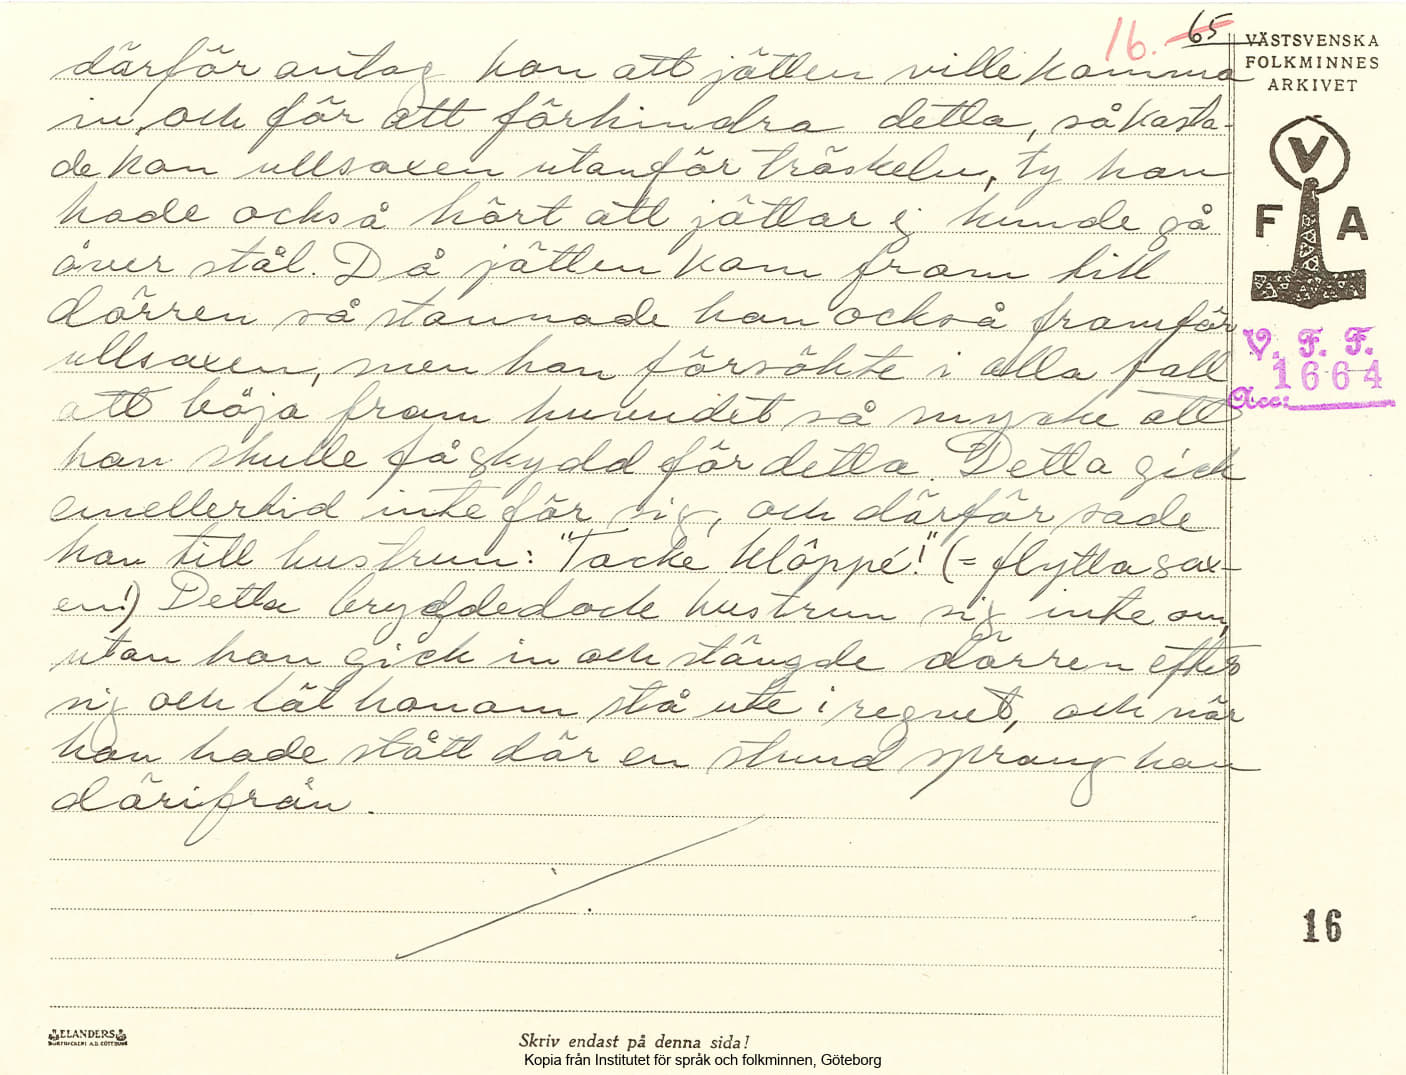 16. 65
VÄSTSVENSKA
FOLKMINNES
ARKIVET
därför antog hon att jätten ville komma
in, och för att förhindra detta, så kasta-
de hon ullsaxen utanför tröskeln, ty hon
hade också hört att jättar ej kunde gå
över stål. Då jätten kom fram till
dörren så stannade han också framför
ullsaxen, men han försökte i alla fall
att böja fram huvudet så mycke att
han skulle få skydd för detta. Detta gick
emellertid inte för sig, och därför sade
han till hustrun: "Tacke klöppe!" (= flytta sax-
en!) Detta bryggde dock hustrun sig inte om,
utan hon gick in och stängde dörren efter
sig och lät honom stå ute i regnet, och när
han hade stått där en stund sprang han
därifrån.
V
F A
V. F. F.
1664
Acc:
16
ELANDERS
BOKTRYCKERI A.B. GÖTEBORG
Skriv endast på denna sida!
Kopia från Institutet för språk och folkminnen, Göteborg